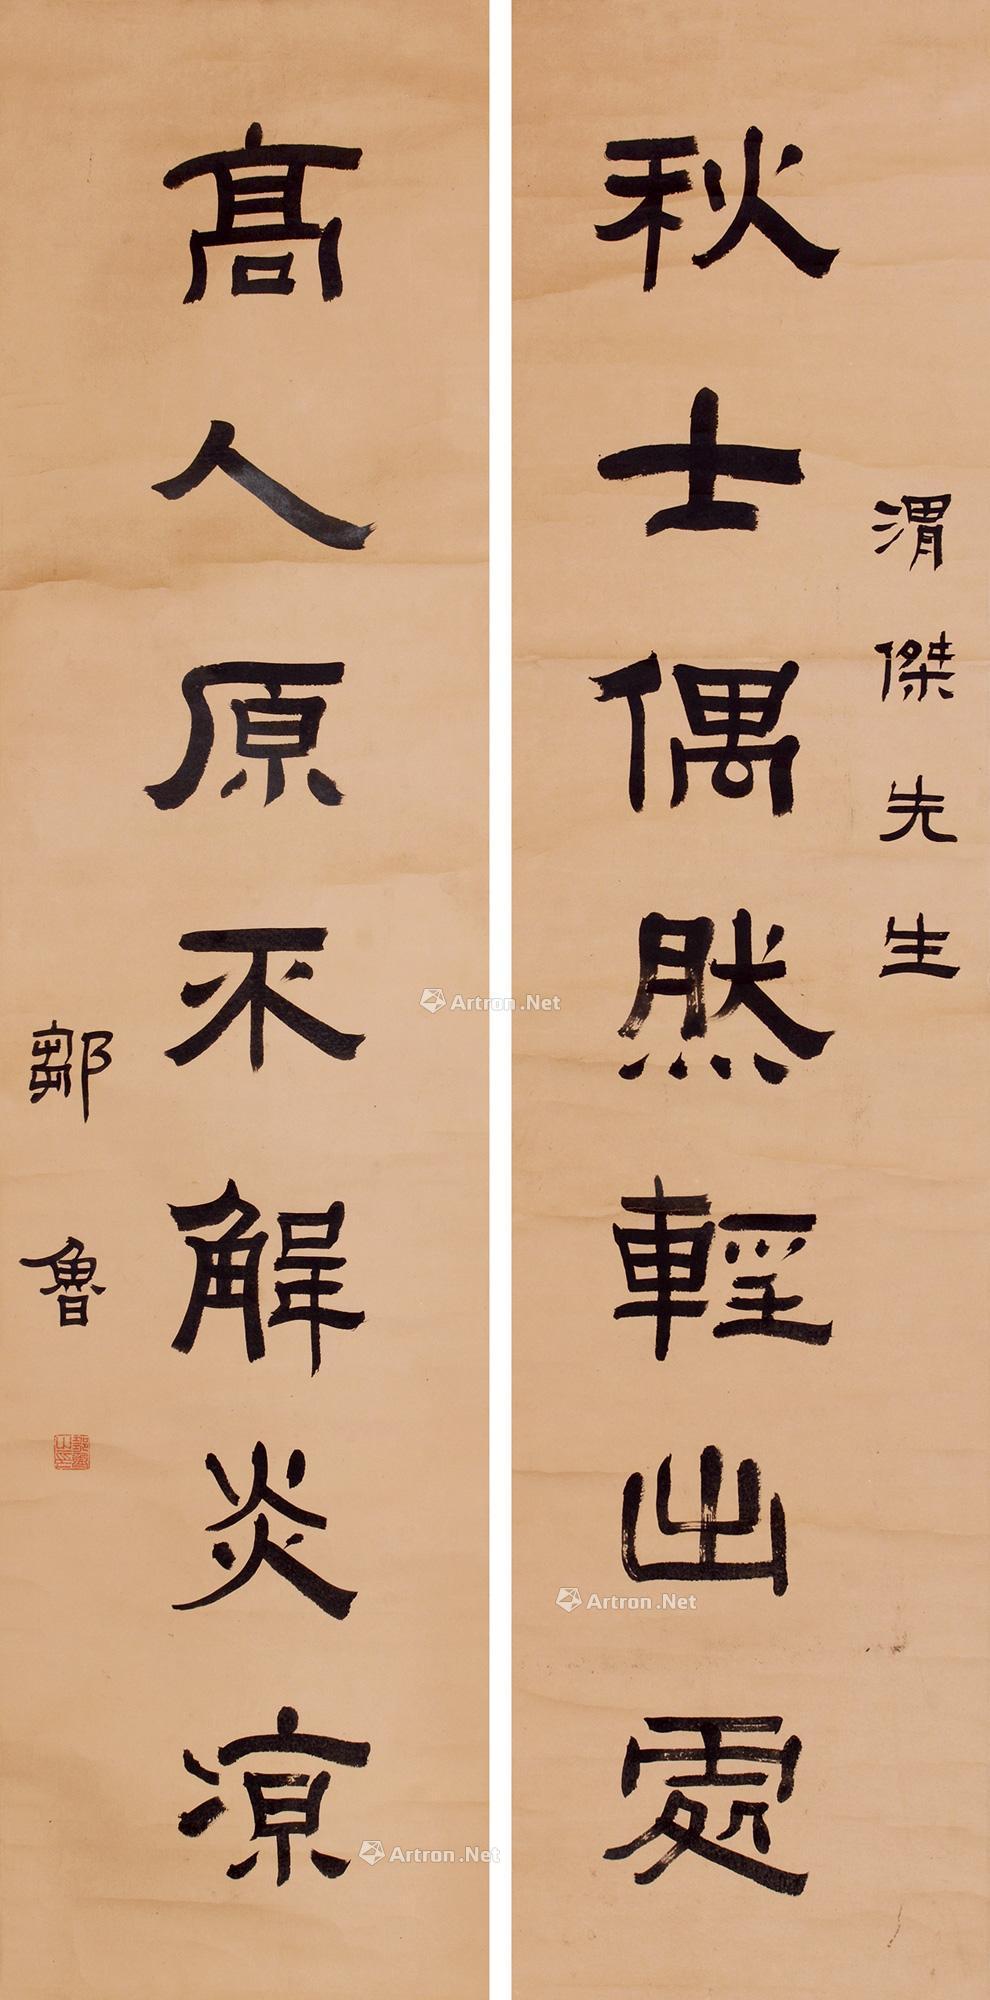 渭傑先生
秋士偶然輕出處
高人原不解炎涼
鄒魯
Artron.Net
Artron.Net
Artron.Net